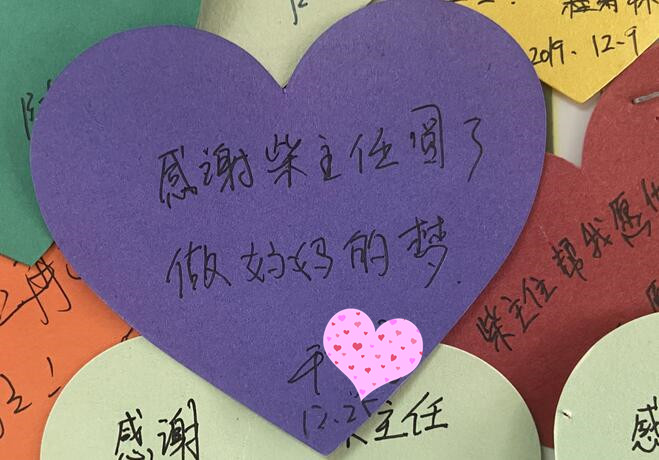 感谢柴主任圆了
做妈妈的梦.
12.25
2019.12.9
柴主任帮我愿
感谢
主任
感